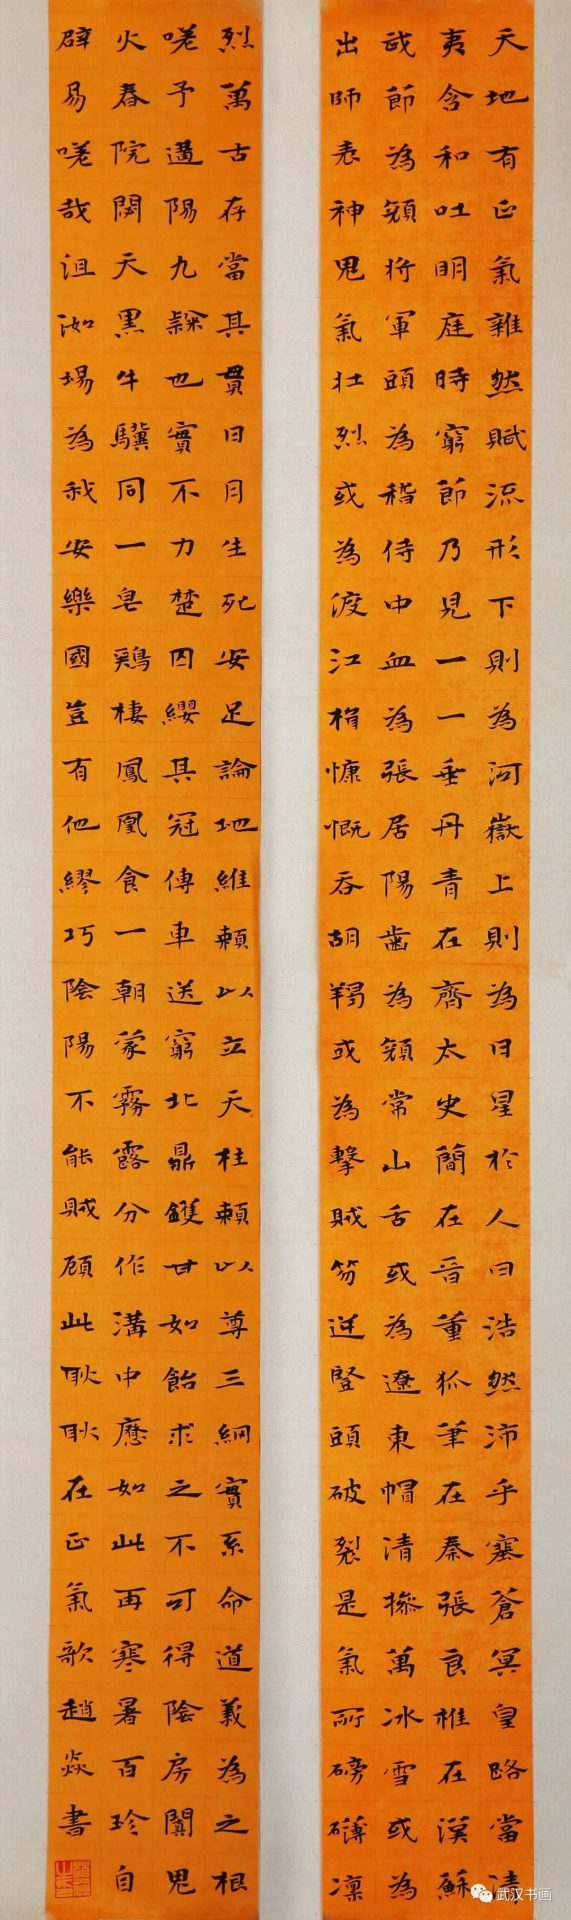 天地有正氣雜然賦流形下則為河嶽上則為日星於人曰浩然沛乎塞蒼冥皇路當清
夷含和吐明庭時窮節乃見一一垂丹青在齊太史簡在晉董狐筆在秦張良椎在漢蘇
武節為顏將軍頭為稽侍中血為張居陽齒為顏常山舌或為遼東帽清操萬冰雪或為
出師表神鬼氣壯烈或為渡江楫慷慨吞胡羯或為擊賊笏逆豎頭破裂是氣所磅礴凜
烈萬古存當其貫日月生死安足論地維賴以立天柱賴以尊三綱實系命道義為之根
嗟予遘陽九隸也實不力楚囚纓其冠傳車送窮北鼎鑊甘如飴求之不可得陰房闐鬼
火春院閟天黑牛驥同一皂鷄棲鳳凰食一朝蒙霧露分作溝中應如此再寒暑百珍自
辟易嗟哉沮洳場為我安樂國豈有他繆巧陰陽不能賊顧此耿耿在正氣歌趙焱書
武汉书画